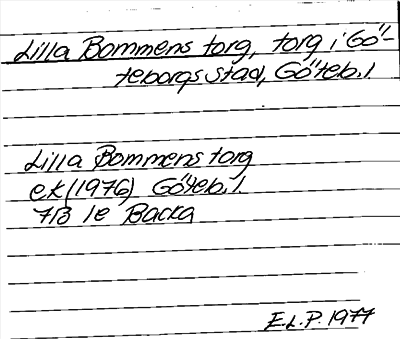 Lilla Bommens torg, torg i Gö-
teborgs stad, Göteb. l
Lilla Bommens torg
ek (1976) Göteb. l.
7B 1e Backa
E.L.P. 1977